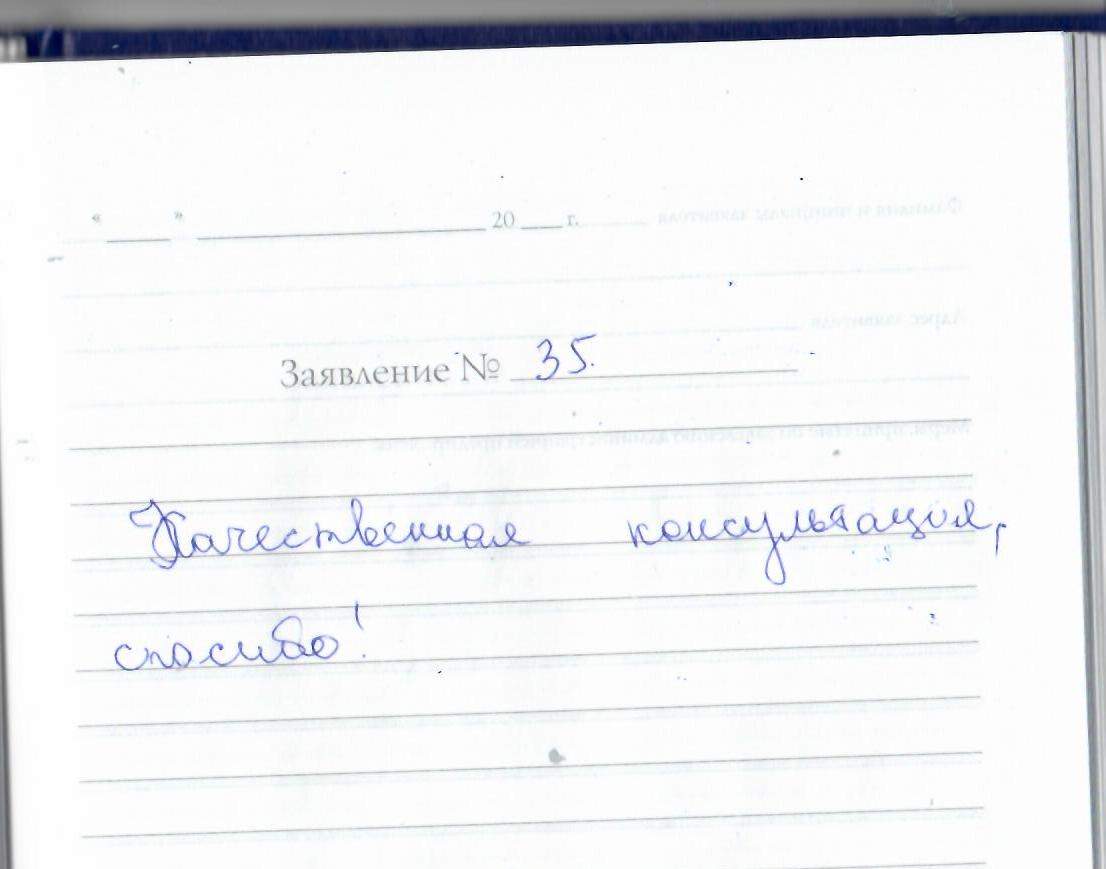 « ____ » ____________________ 20 ___ г.
Заявление № 35.
Качественная консультация,
спасибо!